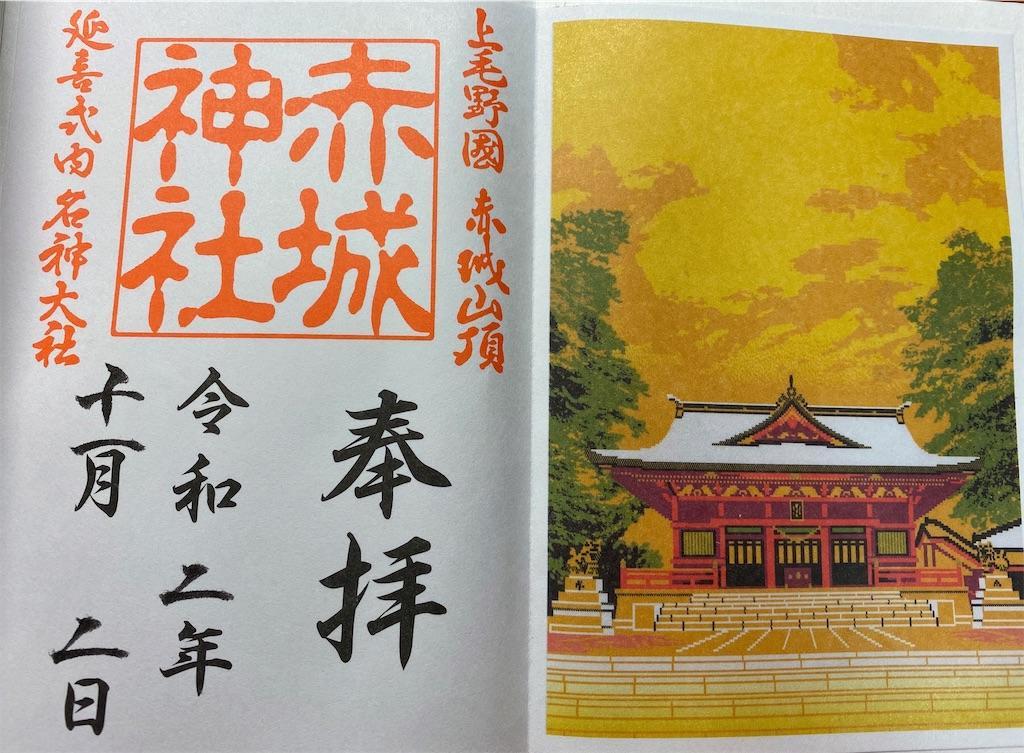 上毛野國 赤城山頂
赤城
神社
延喜式内名神大社
奉拝
令和二年
十一月二日